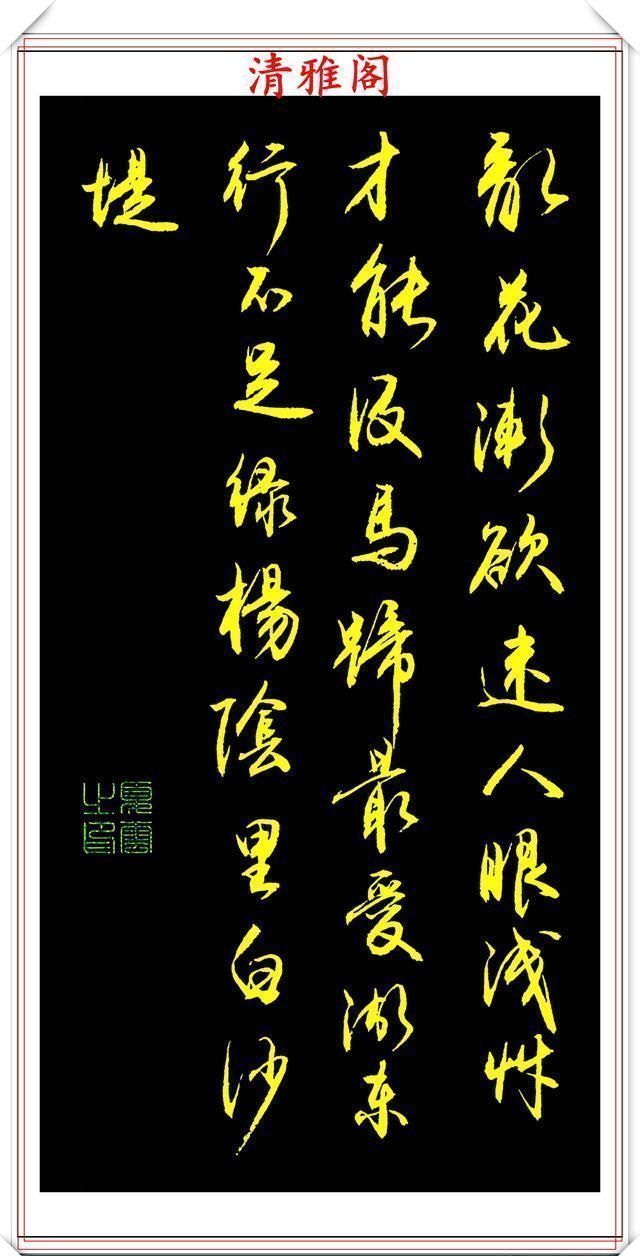 清雅阁
亂花漸欲迷人眼浅艸
才能没馬蹄最爱湖东
行不足绿楊陰里白沙
堤